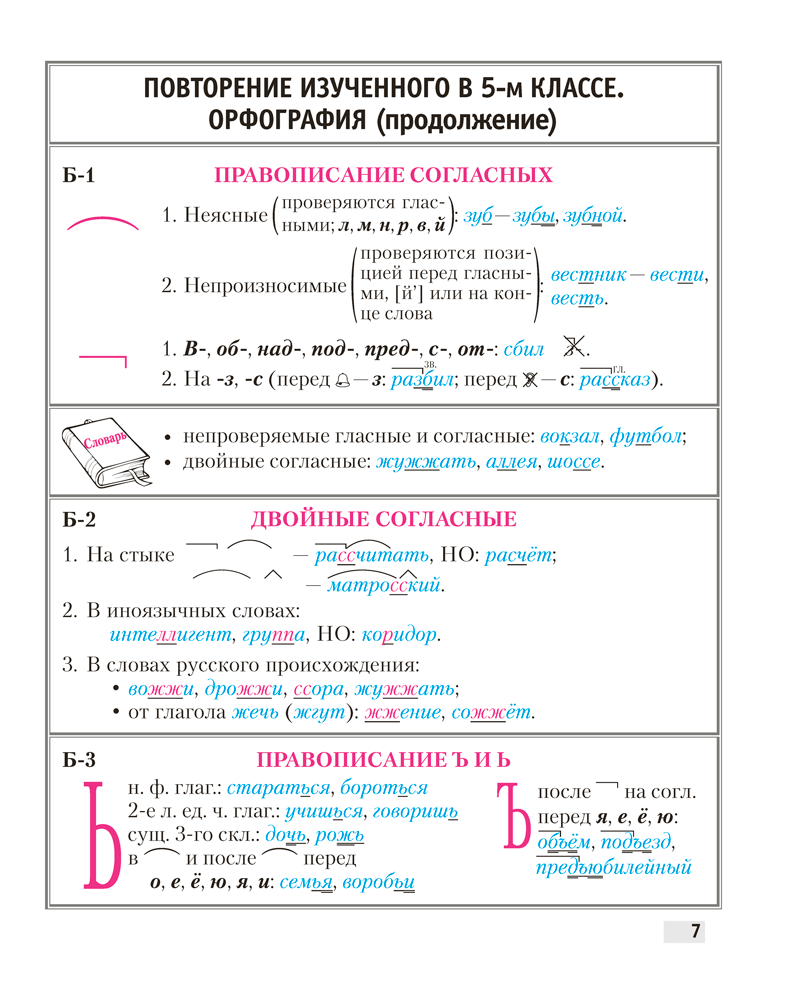 ПОВТОРЕНИЕ ИЗУЧЕННОГО В 5-м КЛАССЕ.
ОРФОГРАФИЯ (продолжение)
Б-1 ПРАВОПИСАНИЕ СОГЛАСНЫХ
1. Неясные (проверяются глас-
ными; л, м, н, р, в, й): зуб — зубы, зубной.
2. Непроизносимые (проверяются пози-
цией перед гласны-
ми, [й’] или на кон-
це слова): вестник — вести,
весть.
1. В-, об-, над-, под-, пред-, с-, от-: сбил З-.
зв. гл.
2. На -з, -с (перед — з: разбил; перед — с: рассказ).
Словарь
• непроверяемые гласные и согласные: вокзал, футбол;
• двойные согласные: жужжать, аллея, шоссе.
Б-2 ДВОЙНЫЕ СОГЛАСНЫЕ
1. На стыке — рассчитать, НО: расчёт;
— матросский.
2. В иноязычных словах:
интеллигент, группа, НО: коридор.
3. В словах русского происхождения:
• вожжи, дрожжи, ссора, жужжать;
• от глагола жечь (жгут): жжение, сожжёт.
Б-3 ПРАВОПИСАНИЕ Ъ И Ь
Ь
н. ф. глаг.: стараться, бороться
2-е л. ед. ч. глаг.: учишься, говоришь
сущ. 3-го скл.: дочь, рожь
в и после перед
о, е, ё, ю, я, и: семья, воробьи
Ъ
после на согл.
перед я, е, ё, ю:
объём, подъезд,
предъюбилейный
7